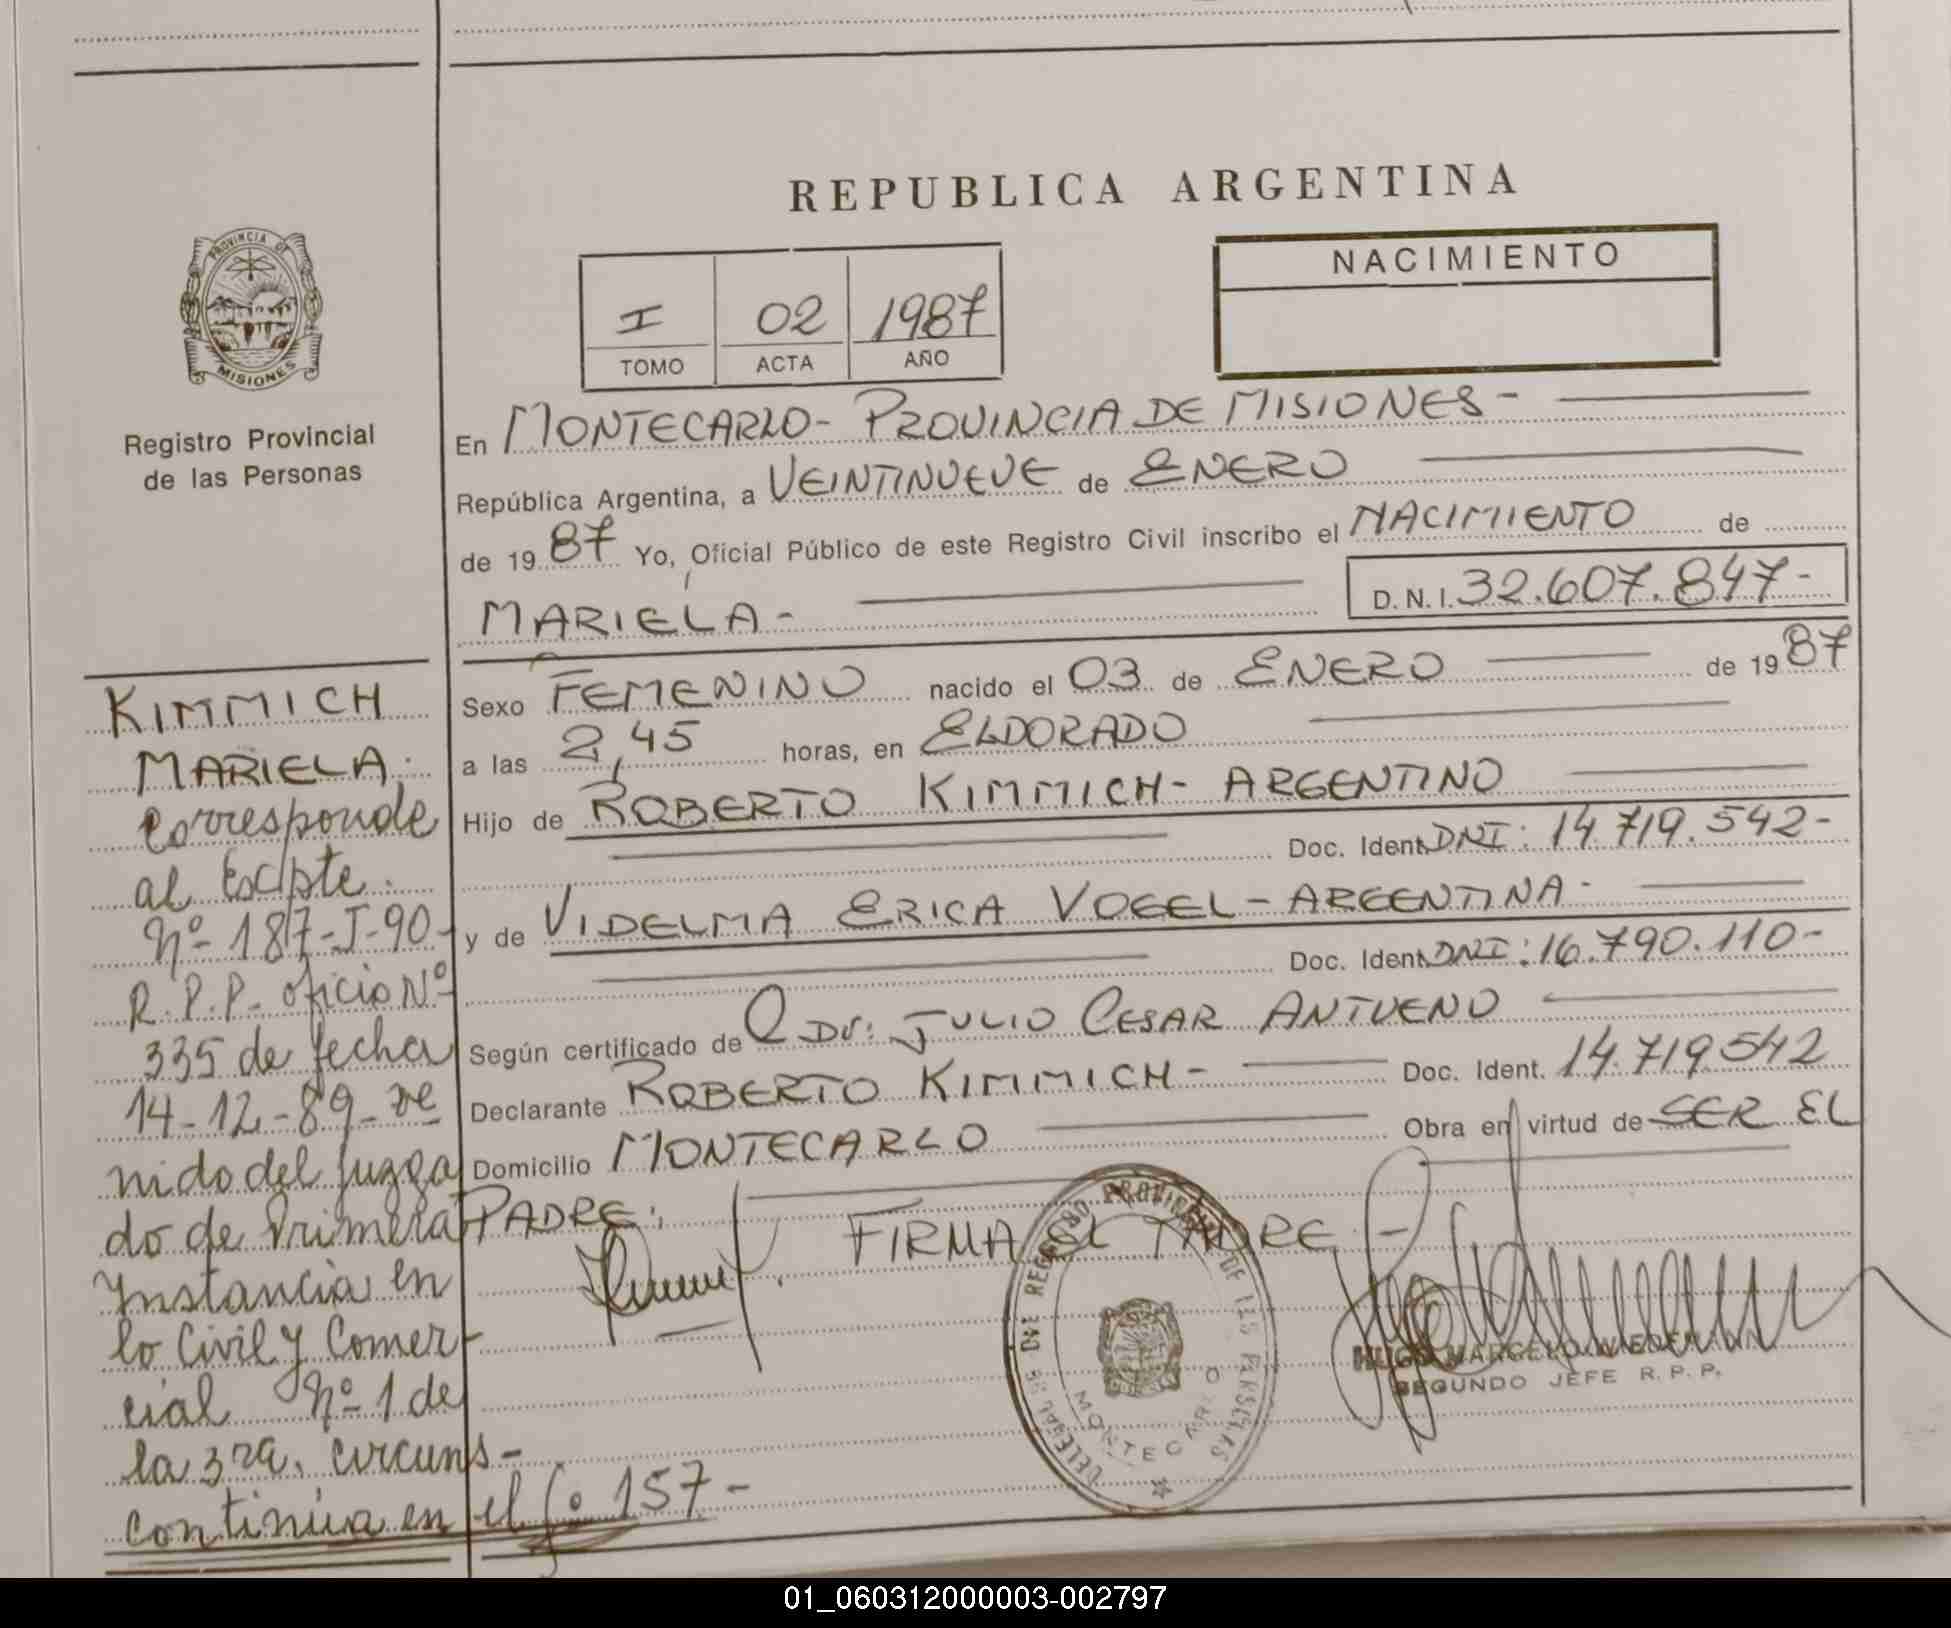 REPUBLICA ARGENTINA
PROVINCIA DE
MISIONES
Registro Provincial
de las Personas
I 02 1987
TOMO ACTA AÑO
NACIMIENTO
En MONTECARLO - PROVINCIA DE MISIONES -
República Argentina, a VEINTINUEVE de ENERO
de 19 87 Yo, Oficial Público de este Registro Civil inscribo el NACIMIENTO de
MARIELA - D. N. I. 32.607.847-
Sexo FEMENINO nacido el 03 de ENERO de 19 87
a las 2,45 horas, en ELDORADO
Hijo de ROBERTO KIMMICH - ARGENTINO
Doc. Ident. DNI: 14.719.542-
y de VIDELMA ERICA VOGEL - ARGENTINA -
Doc. Ident. DNI: 16.790.110-
Según certificado de Dr: JULIO CESAR ANTUENO
Declarante ROBERTO KIMMICH - Doc. Ident. 14.719542
Domicilio MONTECARLO Obra en virtud de SER EL
PADRE. FIRMA EL PADRE -
HUGO MARCELO WIEDEMANN
SEGUNDO JEFE R. P. P.
REGISTRO PROVINCIAL DE LAS PERSONAS
MONTECARLO
KIMMICH
MARIELA.
Corresponde
al Escpte.
Nº 187-J-90-
R.P.P. oficio Nº
335 de fecha
14-12-89-ve
nido del Juzga
do de Primera
Instancia en
lo Civil y Comer-
cial Nº 1 de
la 3ra. circuns-
continúa en el fº 157-
01_060312000003-002797